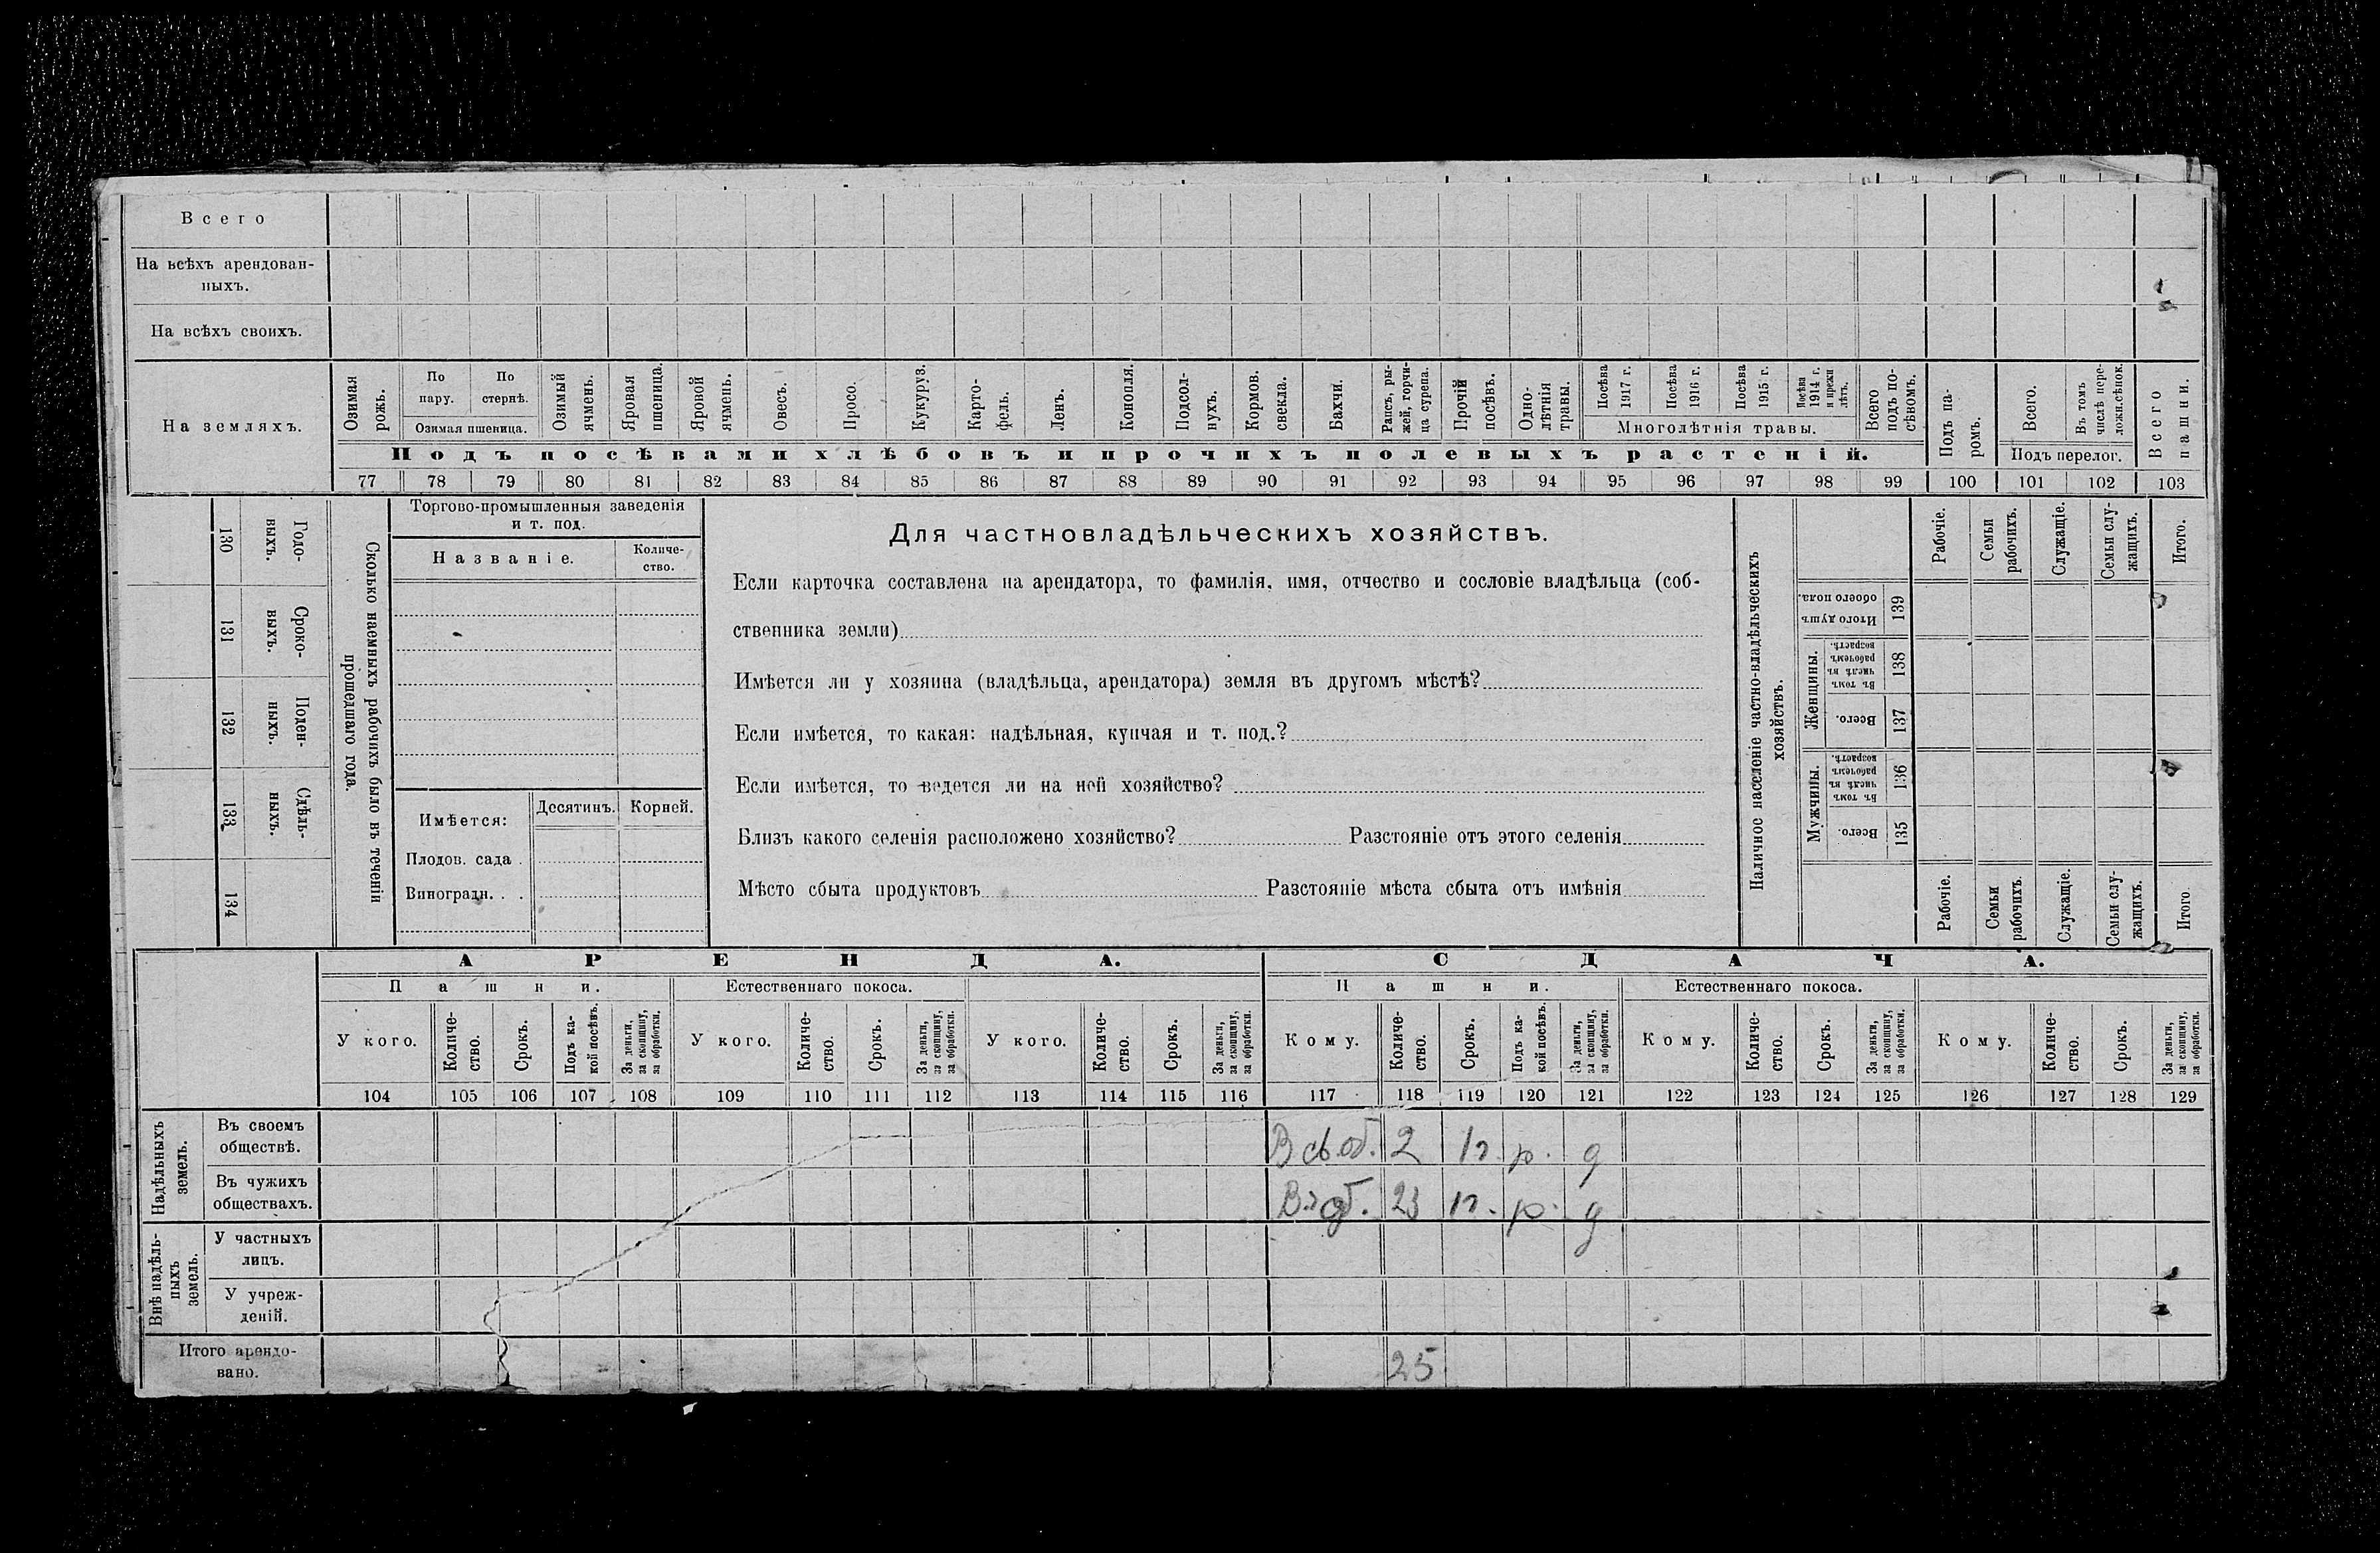 Всего
На всѣхъ арендован-
ныхъ.
На всѣхъ своихъ.
На земляхъ.
Озимая рожь.
По пару.
По стернѣ.
Озимая пшеница.
Озимый ячмень.
Яровая пшеница.
Яровой ячмень.
Овесъ.
Просо.
Кукуруз.
Карто-
фель.
Ленъ.
Конопля.
Подсол-
нухъ.
Кормов. свекла.
Бахчи.
Рапсъ, ры-
жей, горчи-
ца сурепа.
Прочій посѣвъ.
Одно-
лѣтнія травы.
Посѣва 1917 г.
Посѣва 1916 г.
Посѣва 1915 г.
Посѣва 1914 г. и прежн лѣтъ.
Многолѣтнія травы.
Всего подъ по-
сѣвомъ.
Подъ посѣвами хлѣбовъ и прочихъ полевыхъ растеній.
Подъ па-
ромъ.
Всего.
Въ томъ числѣ пере-
ложн.сѣнок.
Подъ перелог.
Всего пашни.
77 78 79 80 81 82 83 84 85 86 87 88 89 90 91 92 93 94 95 96 97 98 99 100 101 102 103
130
Годо-
выхъ.
131
Сроко-
выхъ.
132
Поден-
ныхъ.
133
Сдѣль-
ныхъ.
134
Сколько наемныхъ рабочихъ было въ теченіи
прошедшаго года.
Торгово-промышленныя заведенія
и т. под.
Названіе.
Количе-
ство.
Имѣется:
Десятинъ.
Корней.
Плодов. сада .
Виноградн. . .
Для частновладѣльческихъ хозяйствъ.
Если карточка составлена на арендатора, то фамилія, имя, отчество и сословіе владѣльца (соб-
ственника земли)
Имѣется ли у хозяина (владѣльца, арендатора) земля въ другомъ мѣстѣ?
Если имѣется, то какая: надѣльная, купчая и т. под.?
Если имѣется, то ведется ли на ней хозяйство?
Близъ какого селенія расположено хозяйство? Разстояніе отъ этого селенія
Мѣсто сбыта продуктовъ Разстояніе мѣста сбыта отъ имѣнія
Наличное населеніе частно-владѣльческихъ
хозяйствъ.
Рабочіе.
Семьи рабочихъ.
Служащіе.
Семьи слу-
жащихъ.
Итого.
Итого душъ обоего пола.
139
Женщины.
Въ томъ числѣ въ рабочемъ возрастѣ.
138
Всего.
137
Мужчины.
Въ томъ числѣ въ рабочемъ возрастѣ.
136
Всего.
135
Рабочіе.
Семьи рабочихъ.
Служащіе.
Семьи слу-
жащихъ.
Итого
АРЕНДА.
СДАЧА.
Пашни.
Естественнаго покоса.
Пашни.
Естественнаго покоса.
У кого.
Количе-
ство.
Срокъ.
Подъ ка-
кой посѣвъ.
За деньги, за скопщину, за обработки.
У кого.
Количе-
ство.
Срокъ.
За деньги, за скопщину, за обработки.
У кого.
Количе-
ство.
Срокъ.
За деньги, за скопщину, за обработки.
Кому.
Количе-
ство.
Срокъ.
Подъ ка-
кой посѣвъ.
За деньги, за скопщину, за обработки.
Кому.
Количе-
ство.
Срокъ.
За деньги, за скопщину, за обработки.
Кому.
Количе-
ство.
Срокъ.
За деньги, за скопщину, за обработки.
104 105 106 107 108 109 110 111 112 113 114 115 116 117 118 119 120 121 122 123 124 125 126 127 128 129
Надѣльныхъ земель.
Въ своемъ
обществѣ.
В св.об. 2 1г. р. д
Въ чужихъ
обществахъ.
23 1г. р. д
Внѣ надѣль-
ныхъ земель.
У частныхъ
лицъ.
У учреж-
деній.
Итого арендо-
вано.
25